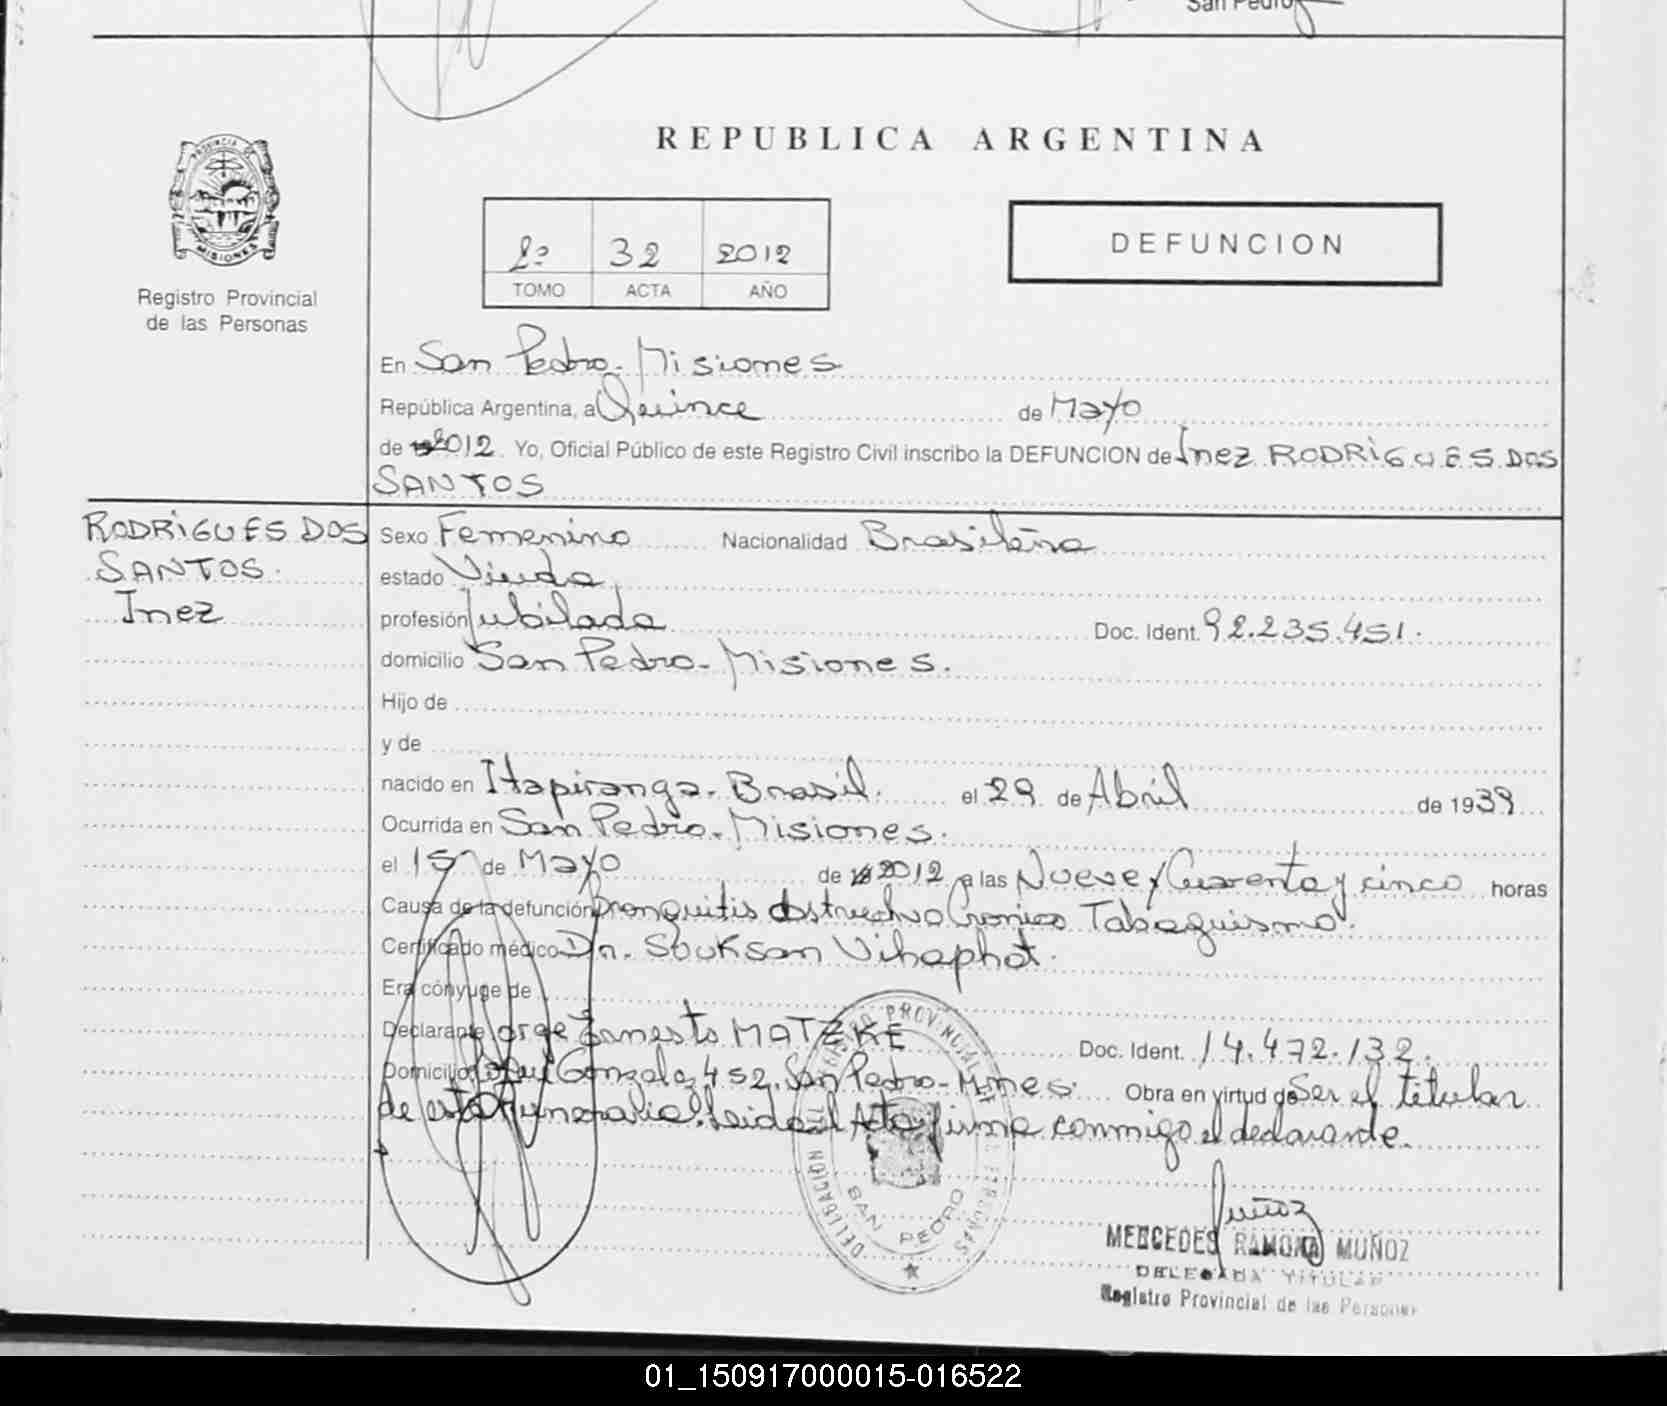 San Pedro
REPUBLICA ARGENTINA
PROVINCIA DE
MISIONES
Registro Provincial
de las Personas
2º 32 2012
TOMO ACTA AÑO
DEFUNCION
En San Pedro - Misiones
República Argentina, a Quince de Mayo
de 2012. Yo, Oficial Público de este Registro Civil inscribo la DEFUNCION de Inez RODRIGUES DOS
SANTOS
RODRIGUES DOS
SANTOS
Inez
Sexo Femenino Nacionalidad Brasileña
estado Viuda
profesión Jubilada Doc. Ident. 92.235.451.
domicilio San Pedro - Misiones.
Hijo de
y de
nacido en Itapiranga - Brasil. el 29 de Abril de 1939
Ocurrida en San Pedro - Misiones.
el 15 de Mayo de 2012 a las Nueve y Cuarenta y cinco horas
Causa de la defunción Bronquitis obstructivo Cronico Tabaquismo.
Certificado médico Dr. Souksan Vihaphat.
Era cónyuge de
Declarante Jorge Ernesto MATZKE Doc. Ident. 14.472.132.
Domicilio Gonzalez 452. San Pedro - Mnes. Obra en virtud de Ser el titular
de esta Funeraria. Leida el Acta firma conmigo el declarante.
REGISTRO PROVINCIAL DE LAS PERSONAS
DELEGACION
SAN PEDRO
Muñoz
MERCEDES RAMONA MUÑOZ
DELEGADA TITULAR
Registro Provincial de las Personas
01_150917000015-016522